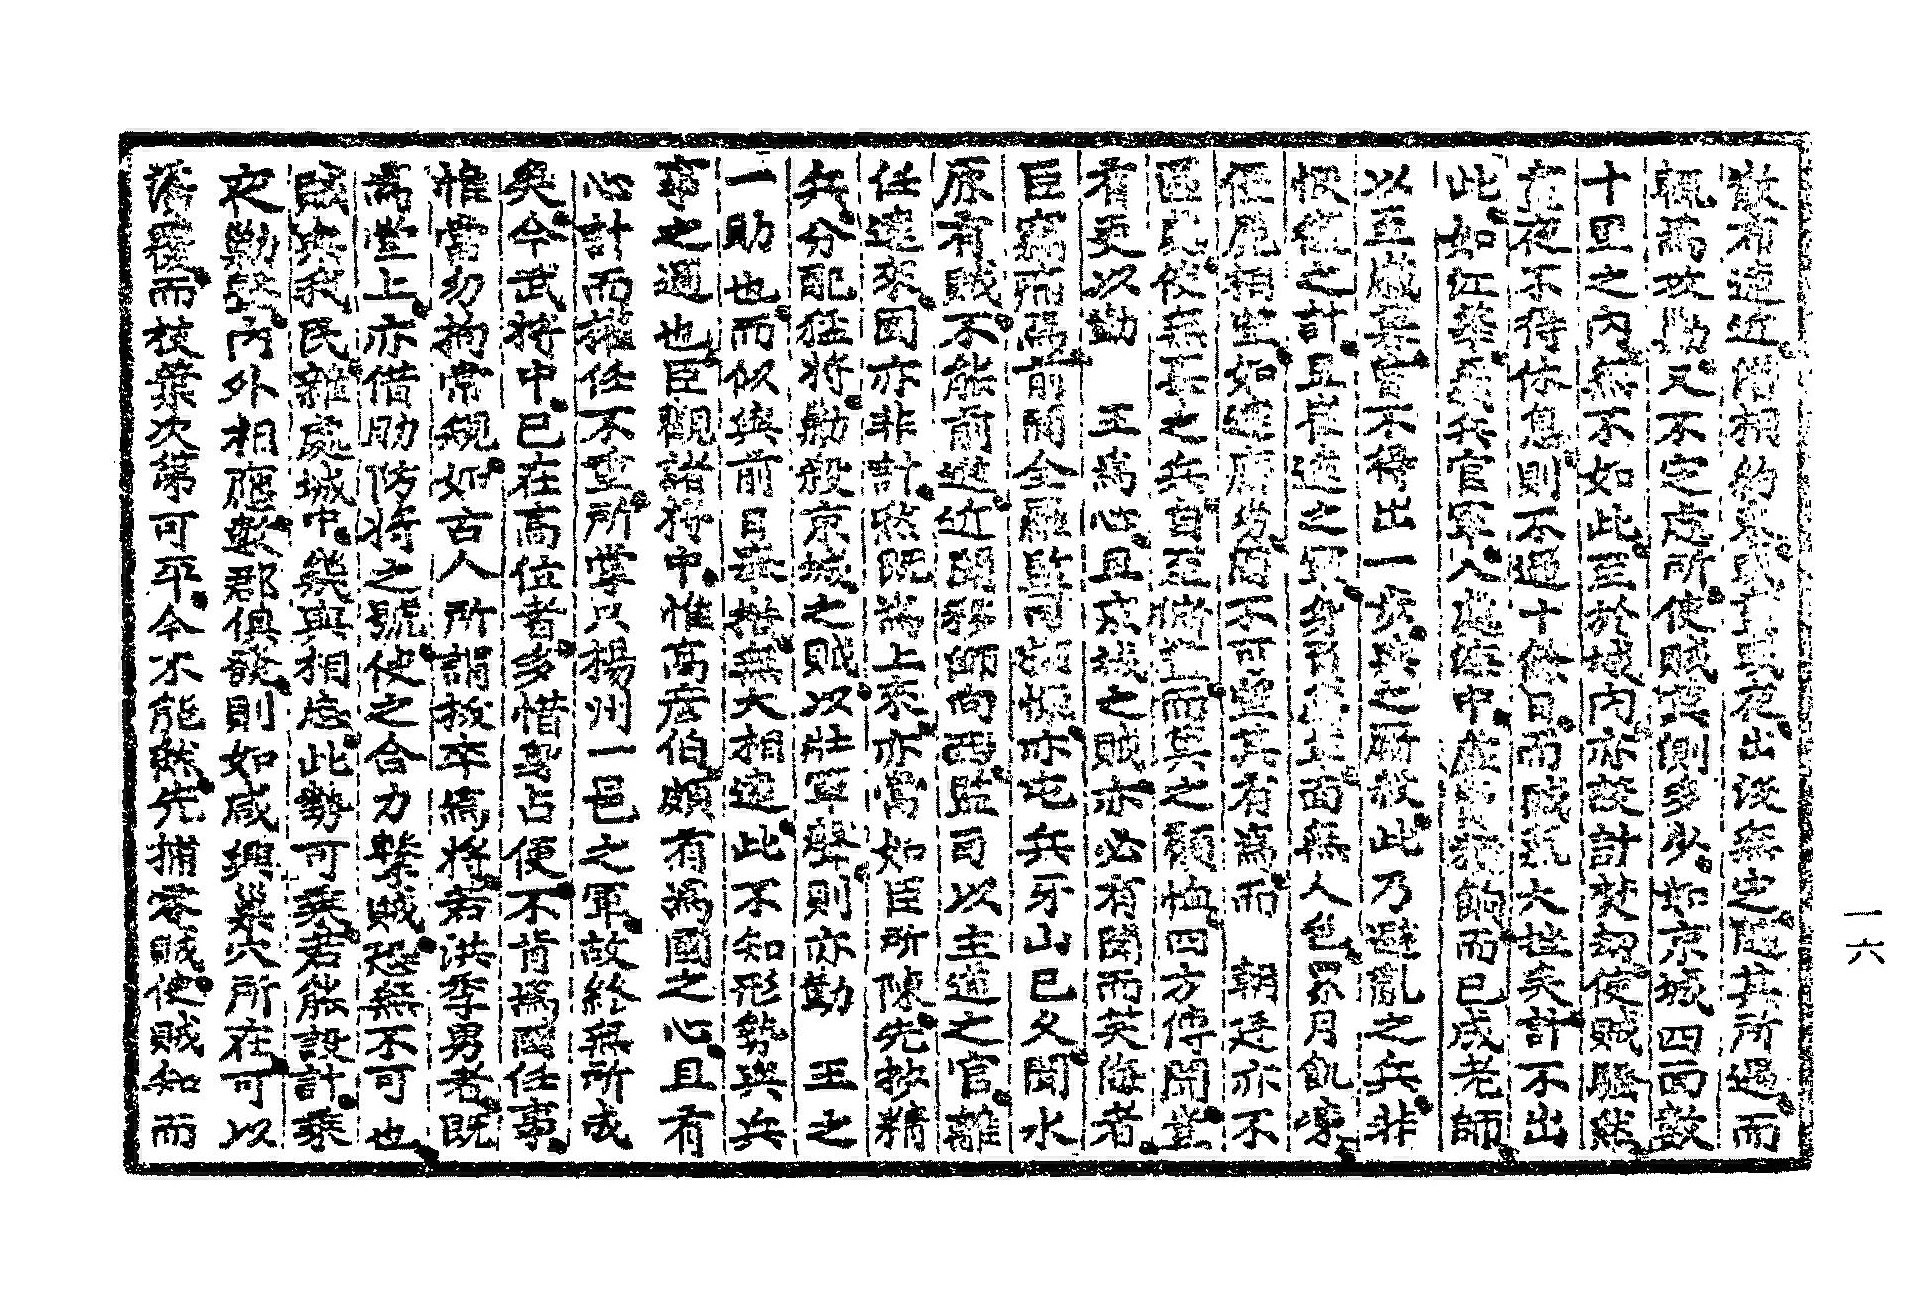 散布遠近潛相約束或晝或夜出沒無定隨其所遇而
輒爲攻勦又不定處所使賊莫測多少如京城四面數
十里之內無不如此至於城內亦設計焚刼使賊騷繞
晝夜不得休息則不過十餘日而賊亂大挫矣計不出
此如江華義兵官軍入海中虛費糧餉而已成老師
以至歲暮皆不得出一步與之厮殺此乃避亂之兵非
之計且進之軍身面無人色累月飢壕
相望如遠不可望其有爲而 朝廷亦不
區無兵之兵自至而莫之顧恤四方傳聞豈
有更以勤 王爲心且京城之賊亦必有聞而笑侮者
臣竊痛焉前聞全羅監司權慄亦屯兵牙山已久聞水
原有賊不能前進近聞移師向西監司以主道之官離
任遠來固亦非計然既爲上來亦當如臣所陳先抄精
兵分配猛將勦殺京城之賊以壯軍聲則亦勤 王之
一助也而似與前日無大相遠此不知形勢與兵
事之過也臣觀諸將中惟高彦伯頗有爲國之心且有
心計而擁任不重所掌只揚州一邑之軍故終無所成
矣今武將中已在高位者多惜身占便不肯爲國任事
惟當勿拘常規如古人所謂拔卒爲將若洪季男者既
爲堂上亦借助防將之號使之合力擊賊恐無不可也
賊與我民雜處城中幾與相忘此勢可乘若能設計乘
夜勦擊內外相應數郡俱設則如咸興巢穴所在可以
蕩覆而枝葉次第可平今不能然先捕零賊使賊知而
一六